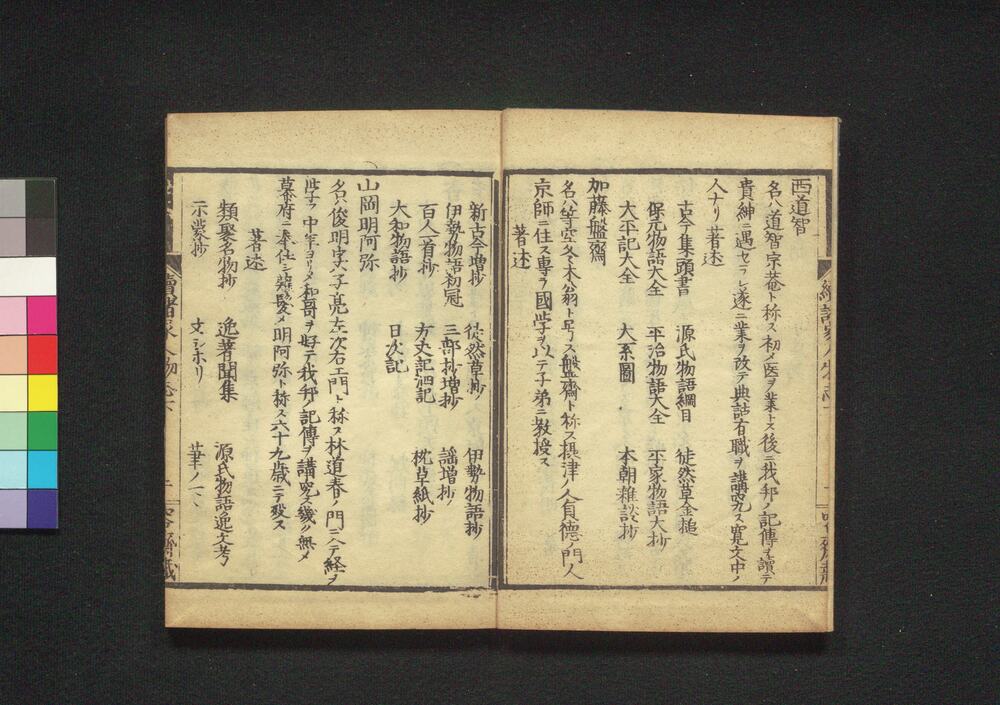 西道智
名ハ道智宗菴ト称ス初メ医ヲ業トス後ニ我邦ノ記傳ヲ讀テ
貴紳ニ遇セラレ遂ニ業ヲ改テ典詁有職ヲ講究ス寛文中ノ
人ナリ 著述
古今集頭書 源氏物語綱目 徒然草金槌
保元物語大全 平治物語大全 平家物語大抄
太平記大全 大系圖 本朝雑談抄
加藤盤齋
名ハ等空冬木翁ト号ス盤齋ト称ス摂津ノ人貞德ノ門人
京師ニ住ス専ラ國学ヲ以テ子弟ニ教授ス
著述
新古今増抄 徒然草抄 伊勢物語抄
伊勢物語初冠 三部抄増抄 謡増抄
百人一首抄 方丈記泗記 枕草紙抄
大和物語抄 日次記
山岡明阿弥
名ハ俊明字ハ子亮左次右エ門ト称ス林道春ノ門ニ入テ経ヲ
学フ中年ヨリメ和哥ヲ好テ我邦ノ記傳ヲ講究シ
幕府ニ奉仕シ薙髪メ明阿弥ト称ス六十九歳ニテ歿ス
著述
類聚名物抄 逸著聞集 源氏物語逸文考
示蒙抄 文シホリ 筆ノ
續諸家人物志下